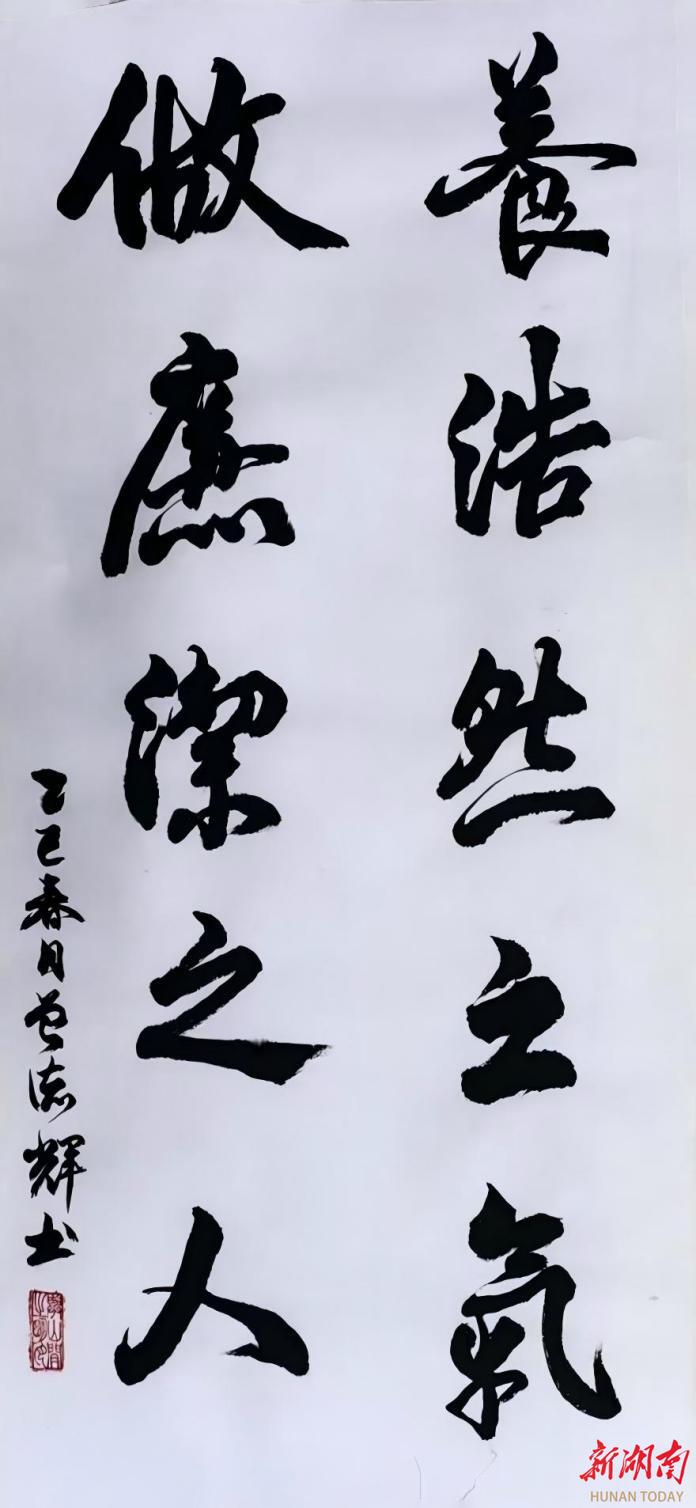 養浩然之氣
做廉潔之人
乙巳春日曾志輝书
新湖南
HUNAN TODAY